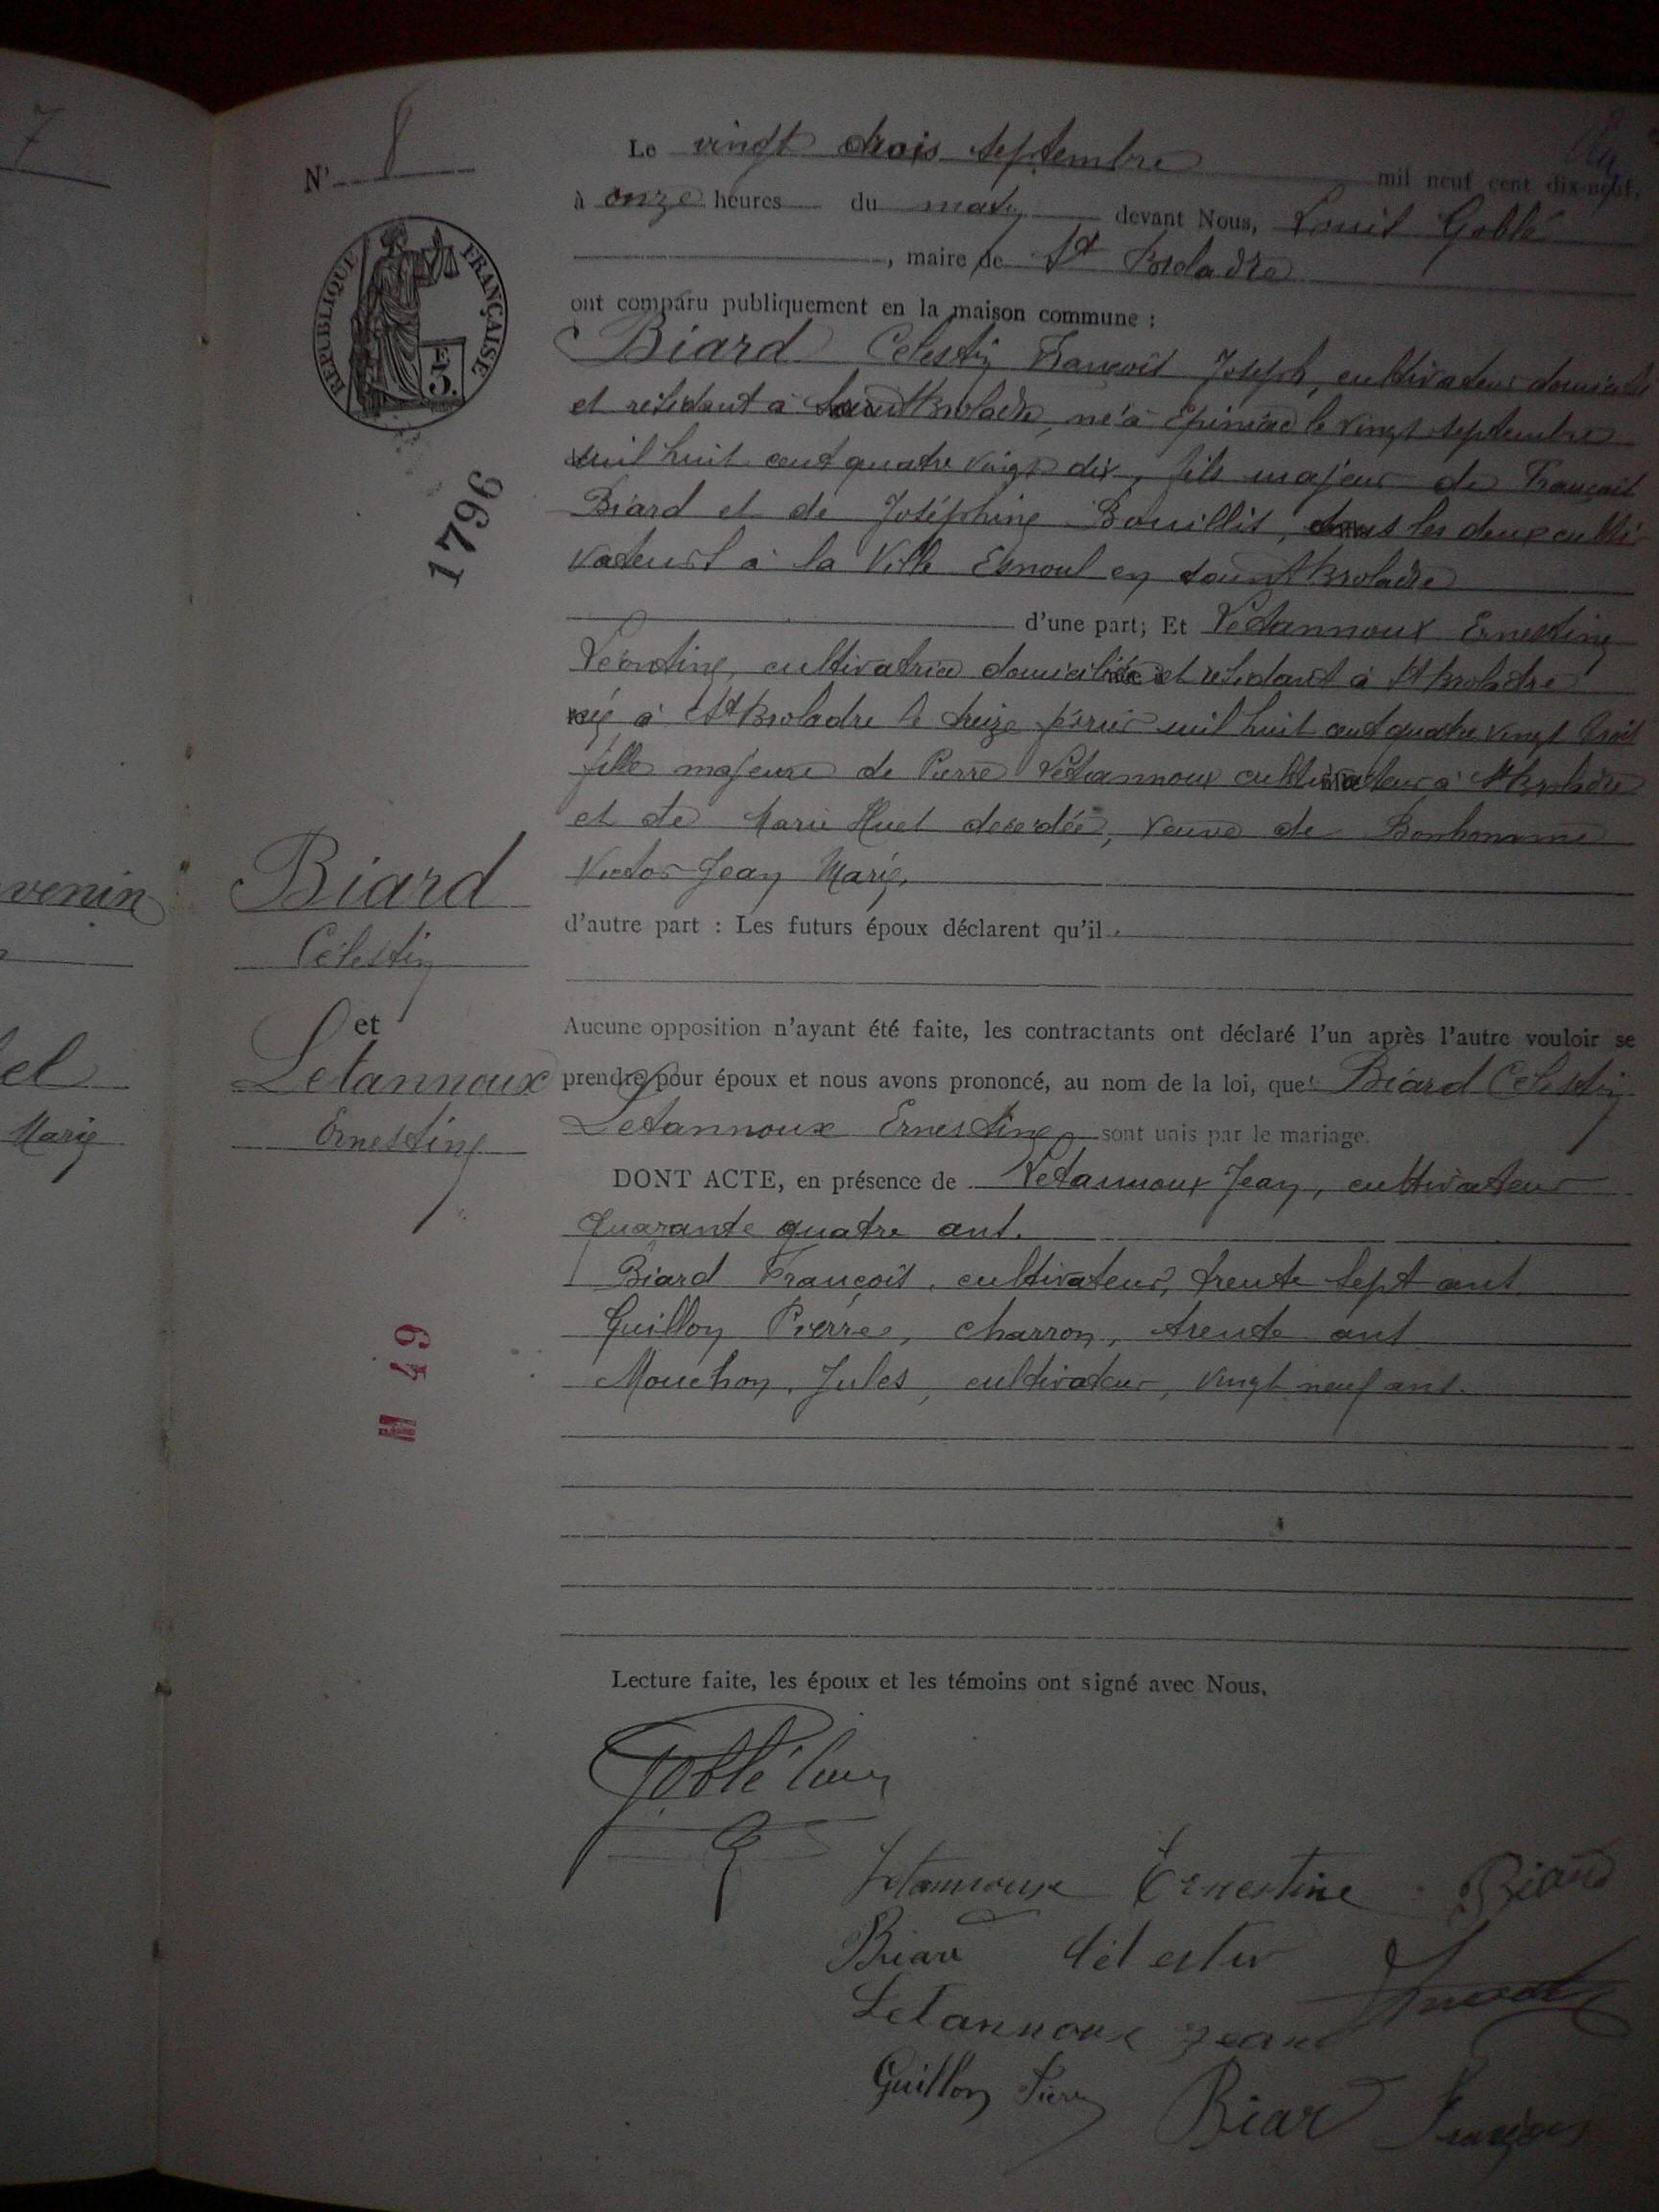 7
venin
el
Marie
N° 8
RÉPUBLIQUE FRANÇAISE
1796
Biard
Célestin
et
Letannoux
Ernestine
Le vingt trois septembre mil neuf cent dix-neuf,
à onze heures du matin devant Nous, Louis Goblé
, maire de St Broladre
ont comparu publiquement en la maison commune :
Biard Celestin François Joseph, cultivateur domicilié
et résidant à Saint Broladre, né à Epiniac le vingt septembre
mil huit cent quatre vingt dix, fils majeur de François
Biard et de Joséphine Bouillis, tous les deux culti
vateurs à la Ville Esnoul en saint Broladre
d'une part; Et Letannoux Ernestine
Léontine, cultivatrice domiciliée et résidant à St Broladre
née à St Broladre le treize février mil huit cent quatre vingt trois
fille majeure de Pierre Letannoux cultivateur à St Broladre
et de Marie Huet decedée, veuve de Bonhomme
Victor Jean Marie,
d'autre part : Les futurs époux déclarent qu'il
Aucune opposition n'ayant été faite, les contractants ont déclaré l'un après l'autre vouloir se
prendre pour époux et nous avons prononcé, au nom de la loi, que Biard Célestin
Letannoux Ernestine sont unis par le mariage.
DONT ACTE, en présence de Letannoux Jean, cultivateur
quarante quatre ans.
Biard François, cultivateur, trente sept ans
Guillon Pierre, charron, trente ans
Mouchon, Jules, cultivateur, vingt neuf ans.
M 49
Lecture faite, les époux et les témoins ont signé avec Nous.
Goblé Louis
Letannoux Ernestine Biard
Biard Célestin
Letannoux Jean
Guillon Pierre Biard François